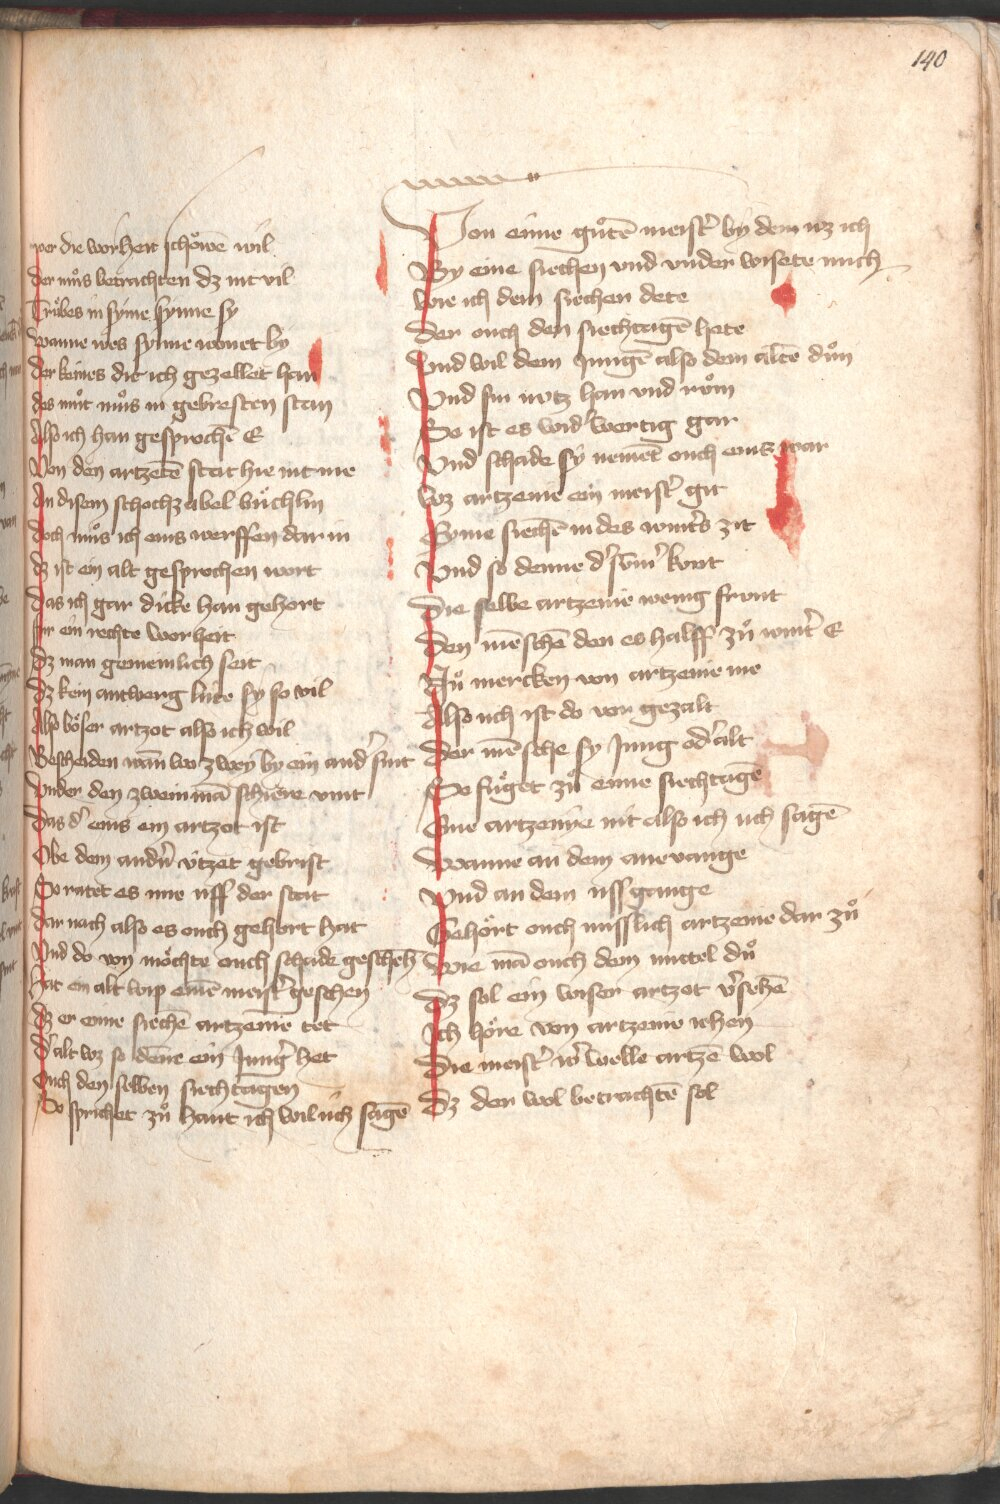 140
wer die worheit schöwē wil
der můs betrachten dz nit vil
Trůbes in syme synne sy
wanne wes synne wonet by
der keines die ich gezellet han
des můt můs in gebresten stan
Also ich han gesprochē E
Von den artzetē stat hie nit me
An disem schochzabel büchlin
doch můs ich eins werffen dar in
dz ist ein alt gesprochen wort
das ich gar dicke han gehort
Fúr ein rechte worheit
dz man gemeinlich seit
dz kein antwerg lúte sy so vil
Also böser artzot also ich wil
Bescheiden wan wo zwey by ein and' sint
vnder den zwein mā schiere vint
das d' eins ein artzot ist
Obe dem andn' útzet gebrist
So ratet es ime uff der stat
dar nach also es ouch gehört hat
vnd do von möchte ouch schade geschēh
hat ein alt wip einē meist' gesehen
dz er eime siechē artzenie tet
d' alt wz so dēne ein Jung' het
ouch den selben siechtagen
So sprichet zů hant ich wil úch sagē
Von eime gůtē meist' by dem wz ich
By eime siechen vnd vnder wisete mich
wie ich dem siechen dete
der ouch den siechtagē hete
vnd wil dem Jungē also dem altē důn
vnd sin nvtz han vnd růn
So ist es wid' wertig gar
vnd schade sy nemēt ouch eins war
waz artzenie ein meist' git
Eyme siechē in des wint's zit
vnd so denne d' sūm' kvnt
die selbe artzenie wenig frvnt
den mēschē den es halff zů wint' E
Nů mercken von artzenie me
Also uch ist do vor gezalt
der mēsche sy Jung od' alt
So fůget zů eime siechtagē
Eine artzenye nit also ich uch sagē
wanne an dem ane vange
vnd an dem uss gange
Gehört ouch misslich artzenie dar zů
wie mā ouch dem mittel důt
dz sol ein wiser artzot v'sehē
Ich höre von artzenie iehen
die meist' w' welle artzē wol
dz der wol betrachtē sol